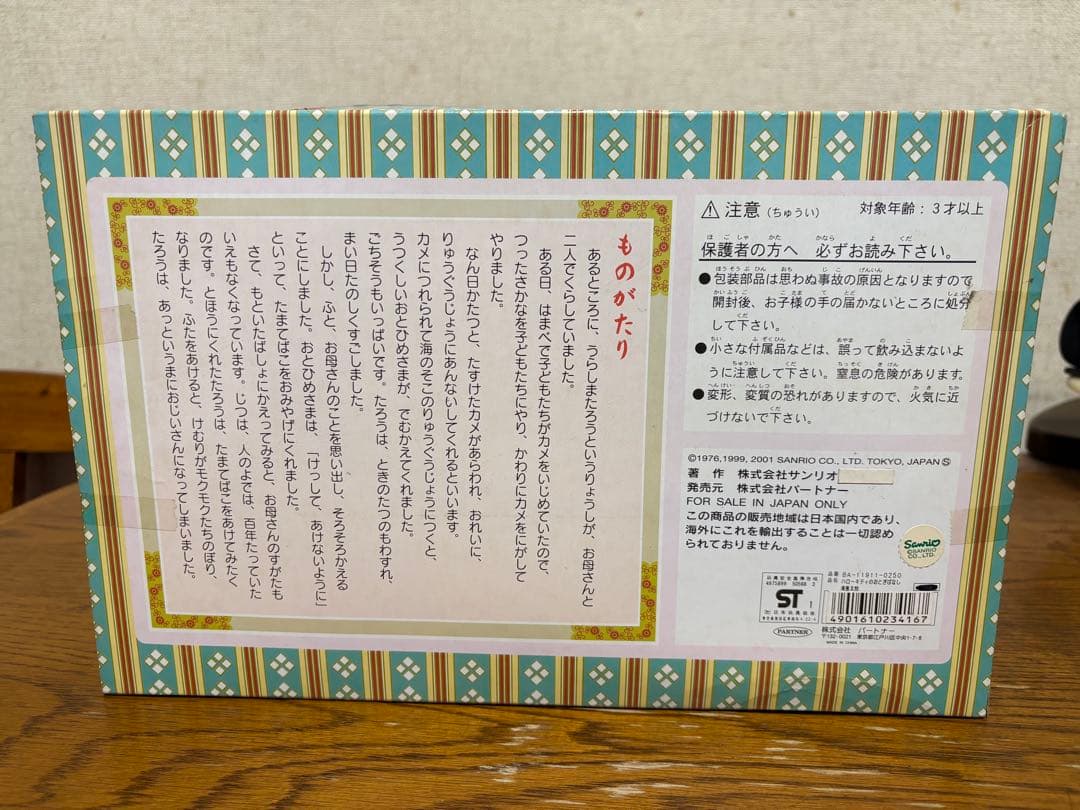 ものがたり
あるところに、うらしまたろうというりょうしが、お母さんと
二人でくらしていました。
ある日、はまべで子どもたちがカメをいじめていたので、
つったさかなを子どもたちにやり、かわりにカメをにがして
やりました。
なん日かたつと、たすけたカメがあらわれ、おれいに、
りゅうぐうじょうにあんないしてくれるといいます。
カメにつれられて海のそこのりゅうぐうじょうにつくと、
うつくしいおとひめさまが、でむかえてくれました。
ごちそうもいっぱいです。たろうは、ときのたつのもわすれ、
まい日たのしくすごしました。
しかし、ふと、お母さんのことを思い出し、そろそろかえる
ことにしました。おとひめさまは、「けっして、あけないように」
といって、たまてばこをおみやげにくれました。
さて、もといたばしょにかえってみると、お母さんのすがたも
いえもなくなっています。じつは、人のよでは、百年たっていた
のです。とほうにくれたたろうは、たまてばこをあけてみたく
なりました。ふたをあけると、けむりがモクモクたちのぼり、
たろうは、あっというまにおじいさんになってしまいました。
⚠注意(ちゅうい) 対象年齢:3才以上
保護者の方へ 必ずお読み下さい。
●包装部品は思わぬ事故の原因となりますので
開封後、お子様の手の届かないところに処分
して下さい。
●小さな付属品などは、誤って飲み込まないよ
うに注意して下さい。窒息の危険があります。
●変形、変質の恐れがありますので、火気に近
づけないで下さい。
©1976,1999, 2001 SANRIO CO., LTD. TOKYO, JAPAN Ⓢ
著 作 株式会社サンリオ
発売元 株式会社パートナー
FOR SALE IN JAPAN ONLY
この商品の販売地域は日本国内であり、
海外にこれを輸出することは一切認め
られておりません。
Sanrio
©SANRIO
CO., LTD.
品番 BA-11911-0250
品名 ハローキティのおとぎばなし
浦島太郎
ST
PARTNER
4901610234167
株式会社 パートナー
〒132-0021 東京都江戸川区中央1-7-6
MADE IN CHINA